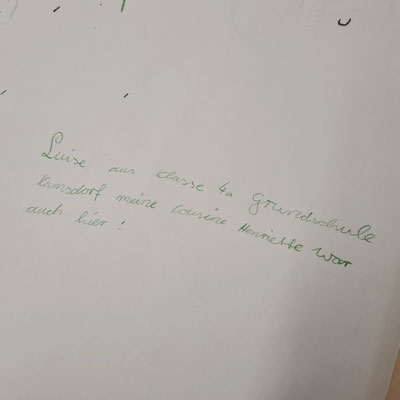 Luise aus Klasse 4a Grundschule
Kamsdorf meine Cousine Henriette war
auch hier !